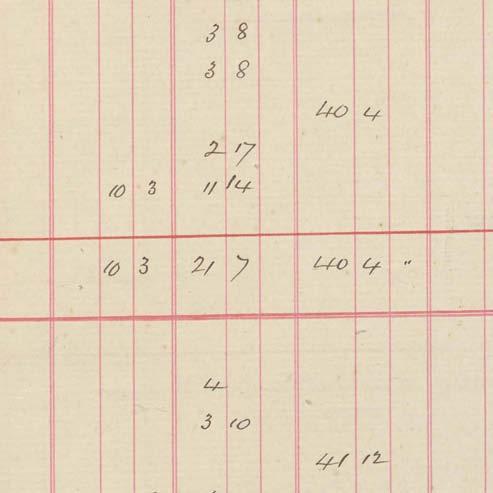 3 8
3 8
40 4
2 17
10 3 11 14
10 3 21 7 40 4 "
4
3 10
41 12